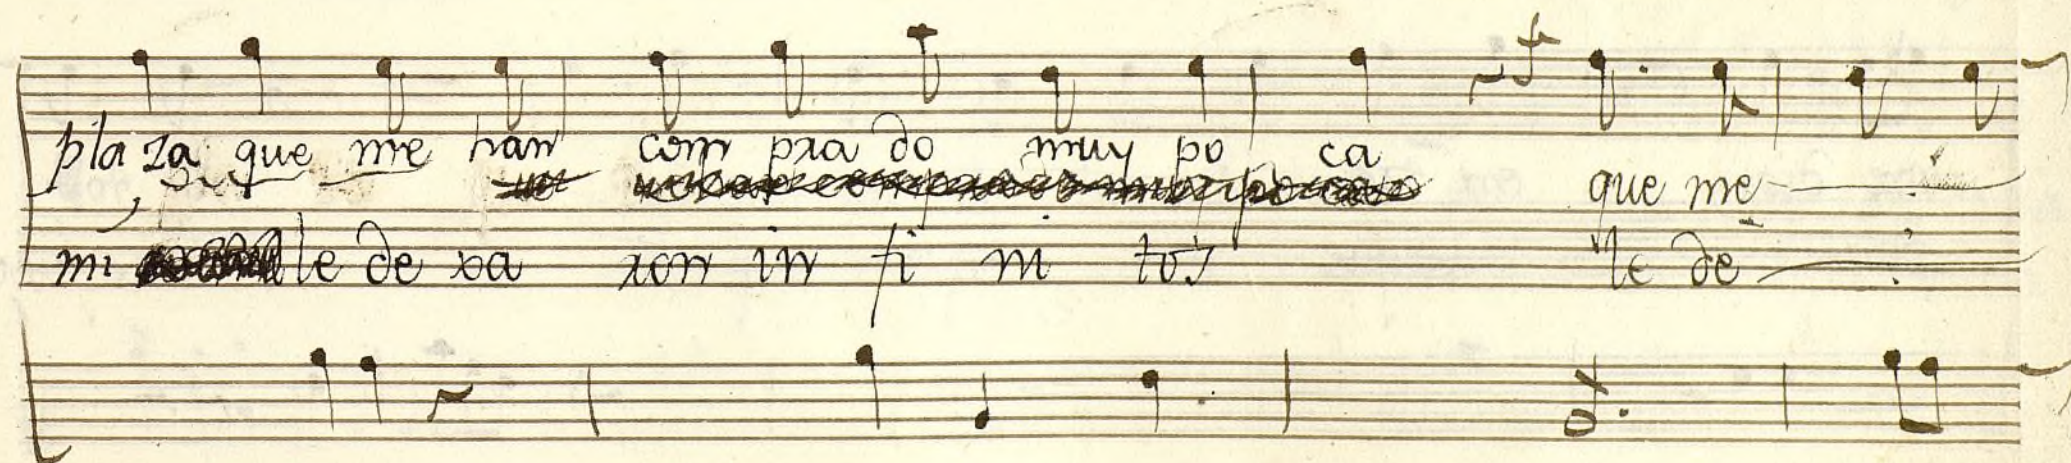 pla za que me han com pra do muy po ca que me
mi le de xa ron in fi ni tos le de